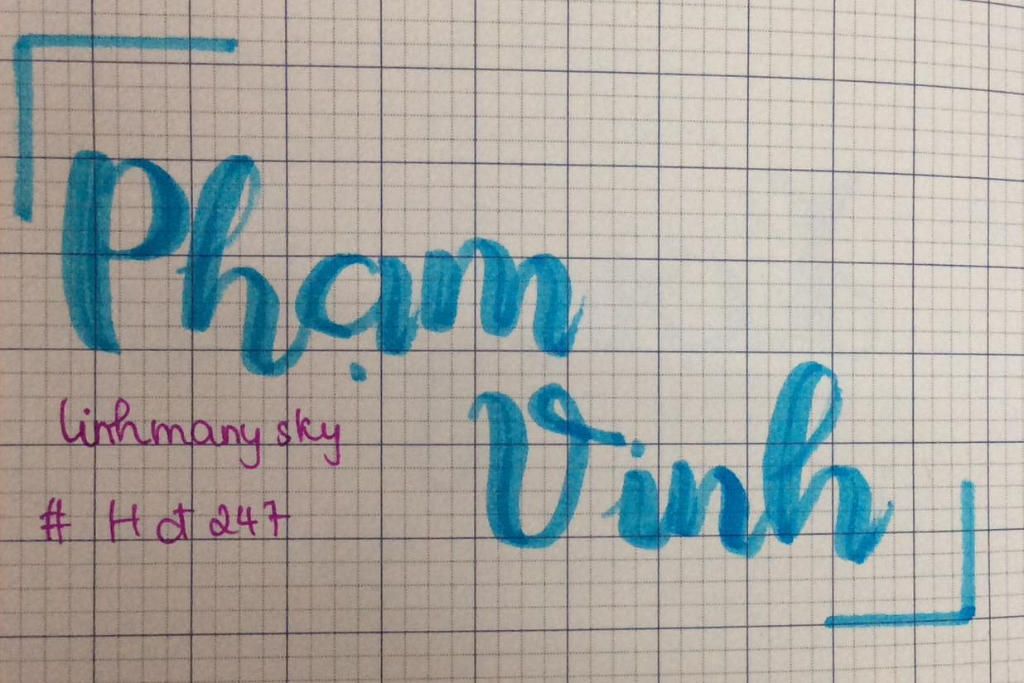 Phạm
Vinh
linhmany sky
# Hđ 247